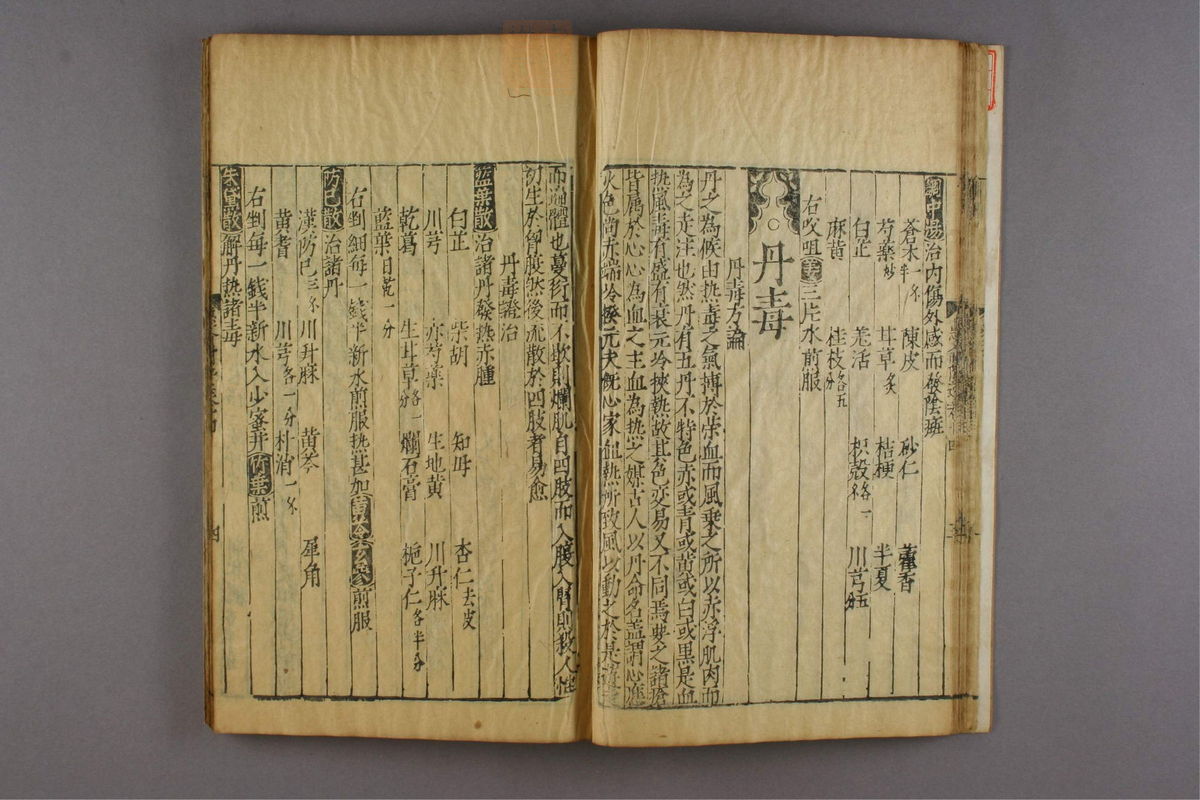 調中湯治内傷外感而發陰斑
蒼朮一分半 陳皮 砂仁 藿香
芍藥炒 甘草炙 桔梗 半夏
白芷 羌活 枳殼各一分 川芎五分
麻黄 桂枝各五分
右㕮咀姜三片水煎服
丹毒
丹毒方論
丹之為候由热毒之氣搏於荣血而風乗之所以赤浮肌肉而
為之走注也然丹有五丹不特色赤或青或黄或白或黒是血
热風毒有盛有衰元冷挾熱故其色変易又不同焉要之諸瘡
皆属於心心為血之主血為热之媒古人以丹命名盖謂心應
火色尚赤端於發元夫既心家血熱所致風以動之於是
而遍體也蔓衍而不歇則爛肌自四肢而入腹入腎則殺人惟
初生於胷腹然後流散於四肢者易愈
丹毒證治
藍葉散治諸丹發热赤腫
白芷 柴胡 知母 杏仁去皮
川芎 赤芍藥 生地黄 川升麻
乾葛 生甘草各一分 爛石膏 梔子仁各半分
藍葉日乾一分
右剉細每一錢半新水煎服热甚加黄芩玄參煎服
防已散治諸丹
漢防已三分 川升麻 黄芩 犀角
黄耆 川芎各一分 朴消一分
右剉每一錢半新水入少蜜并竹葉煎
朱貸散解丹热諸毒